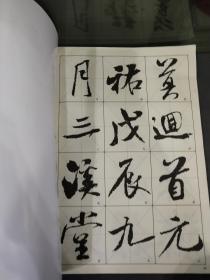 莫迴首元
祐戊辰九
月三溪堂